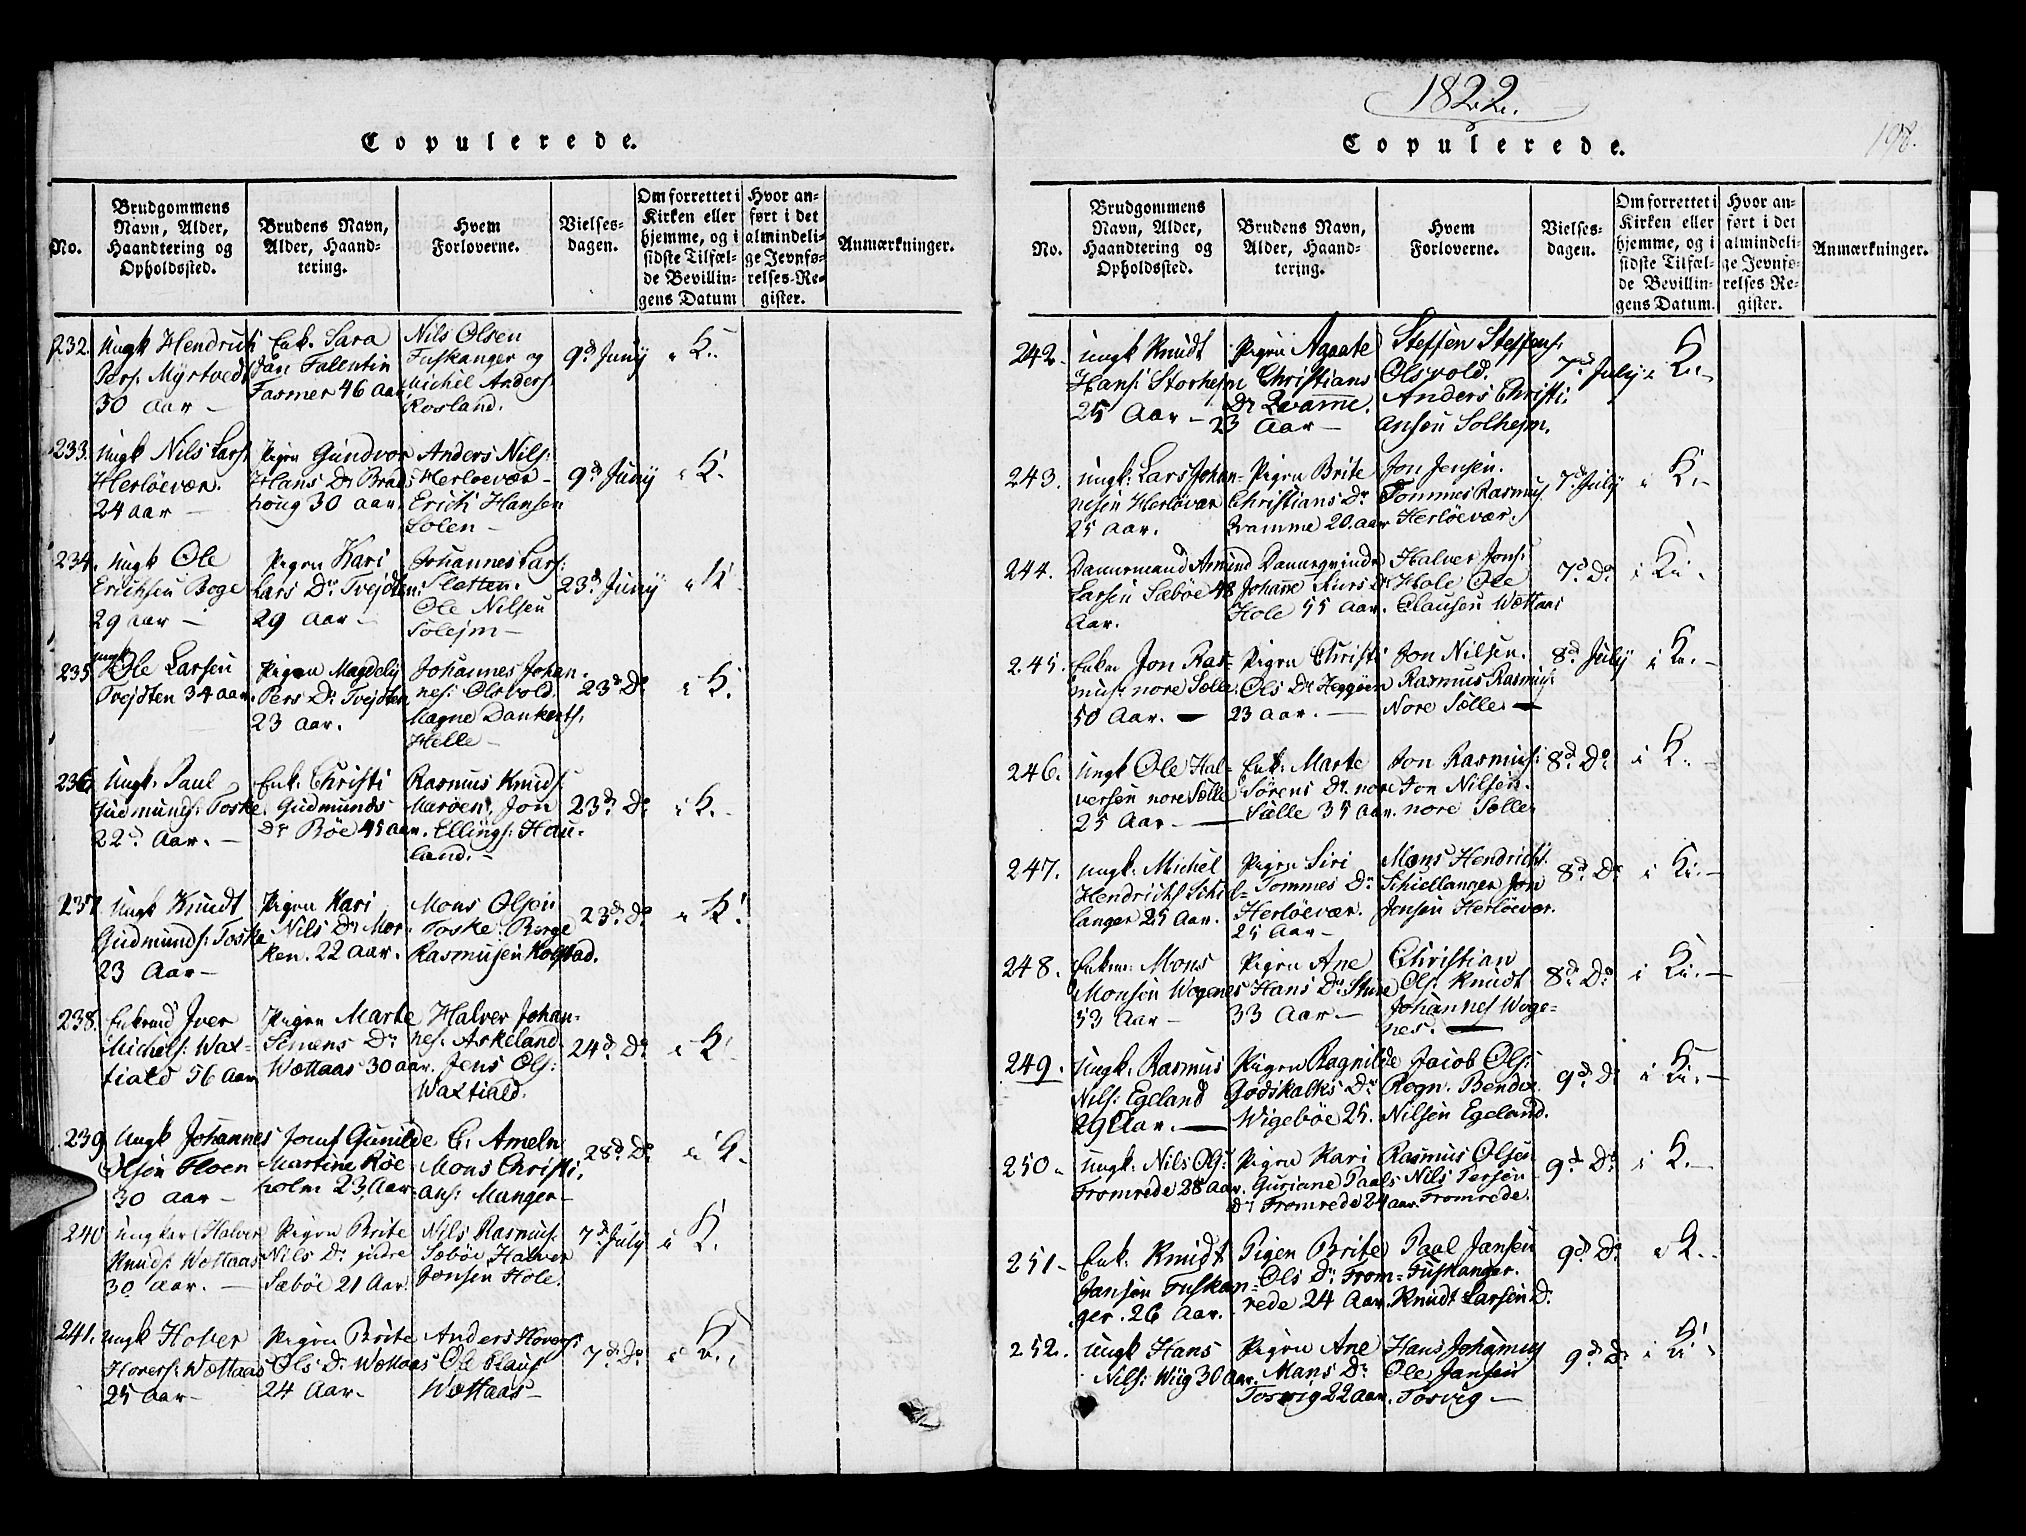 Copulerede.
No.
Brudgommens Navn, Alder, Haandtering og Opholdssted.
Brudens Navn, Alder, Haandtering.
Hvem Forloverne.
Vielses-dagen.
Om forrettet i Kirken eller hjemme, og i sidste Tilfælde Bevillingens Datum
Hvor anført i det almindelige Jevnførelses-Register.
Anmærkninger.
232. Ungk Hendrich Pers: Myrtvedt 30 Aar —
Enk. Sara Jan Falentin Fasmer 46 Aar
Nils Olsen Fuskanger og Michel Anders: Rosland.
9d Juny
i K.
233. Ungk Nils Lars: Herløevær. 24 aar —
Pigen Gundvor Hans Dr Brad houg 30 aar
Anders Nils: Herloevær — Erich Hansen Solen —
9d Juny
i K.
234. Ungk Ole Erichsen Boge 29 aar —
Pigen Kari Lars Dr Tvejdten 29 Aar —
Johannes Lars: Slatten. Ole Nilsen Solejm —
23d Juny
i K
235 Ungk Ole Larsen Tvejdten 34 aar.
Pigen Magdely Pers Dr Tvejdten 23 Aar.
Johannes Johannes: Olsvold. Magne Dankerts. Helle —
23d Do
i K.
236. Ungk. Paul Gudmunds: Toske 22d Aar. —
Enk. Christi Gudmunds Dr Bøe 45 aar.
Rasmus Knuds: Marøen, Jon Ellings: Hauland. —
23d Do
i K.
237 Ungk Knudt Gudmunds: Toske 23 Aar —
Pigen Kari Nils Dr Morken. 22 Aar.
Mons Olsen Toske. Børge Rasmusen Kolstad.
23d Do
i K.
238. Enkemd Iver Michels: Waxtiald 56 Aar
Pigen Marte Simens Dr Wættaas 30 aar.
Halver Johannes: Askeland. Jens Ols: Waxtiald.
24d Do
i K.
239 Ungk Johannes Olsen Floen 30 aar —
Jomf Gunilde Martine Røeholm 23, Aar
C. Ameln Mons Christians: Manger —
28d Do
i K.
240 Ungker Halver Knuds: Wættaas 30 aar. —
Pigen Brite Nils Dr jndre Sæbøe 21 Aar.
Nils Rasmus: Sæbøe Halver Jonsen Hole.
7d July
i K.
241. Ungk Hover Hovers: Wættaas 25 aar —
Pigen Brite Ols Dr Wættaas 24 Aar.
Anders Hovers: Ole Claus: Wættaas —
7d Do
i K.
1822.
Copulerede.
198.
No.
Brudgommens Navn, Alder, Haandtering og Opholdssted.
Brudens Navn, Alder, Haandtering.
Hvem Forloverne.
Vielses-dagen.
Om forrettet i Kirken eller hjemme, og i sidste Tilfælde Bevillingens Datum.
Hvor anført i det almindelige Jevnførelses Register.
Anmærkninger.
242. Ungk Knudt Hans: Storhejm 25 Aar —
Pigen Agaate Christians Dr Qvamme. 23 Aar —
Steffen Steffens: Olsvold. Anders Christiansen Solhejm.
7d July
i K. —
243. Ungk: Lars Johannesen Herløevær 25 Aar.
Pigen Brite Christians Dr Qvamme 20. aar
Jon Jensen. Tommes Rasmus: Herløevær.
7d July
i K. —
244. Dannemand Amund Larsen Sæbøe 48 Aar.
Dannequinde Johanne Iivers Dr Hole 55 Aar.
Halver Jons: Hole Ole Clausen Wættaas
7d Do
i K.
245. Enkm Jon Rasmus: nore Sælle 50 Aar. —
Pigen Christi Ols Dr Heggøen 23 aar. —
Jon Nilsen. Rasmus Rasmus: Nore Sælle —
8d July
i K. —
246. Ungk Ole Halversen nore Sælle 25 Aar. —
Enk: Marte Sørens Dr nore Sælle 35 Aar.
Jon Rasmus: Jon Nilsen. nore Sælle.
8d Do
i K. —
247. Ungk. Michel Hendrichs Schiellanger 25 Aar.
Pigen Siri Tommes Dr Herløevær. 25 Aar —
Mons Hendrichs: Schiellanger Jon Jensen Herløevær.
8d Do
i K. —
248. Enkm: Mons Monsen Wogenes 53 Aar —
Pigen Ane Hans Dr Sture 33 Aar —
Christian Ols: Knudt Johannes Wogenes. —
8d Do
i K. —
249. Ungk. Rasmus Nils: Egeland 29 Aar. —
Pigen Ragnilde Godskalks Dr Wigebøe 25.
Jacob Ols: Rogn. Bendix Nilsen Egeland.
9d Do
i K. —
250. Ungk. Nils Ols: Fromrede 28 Aar.
Pigen Kari Guriane Paals Dr Fromrede 24 aar.
Rasmus Olsen Nils Persen Fromrede.
9d Do
i K. —
251. Enk. Knudt Jansen Fuskanger. 26 Aar.
Pigen Brite Ols Dr Fromrede 24 Aar.
Paal Jansen Fuskanger. Knudt Larsen Do
9d Do
i K.
252. Ungk Hans Nils: Wiig 30 Aar.
Pigen Ane Mans Dr Tosvig 22 aar.
Hans Johannes Ole Jansen Tosvig —
9d Do
i K.